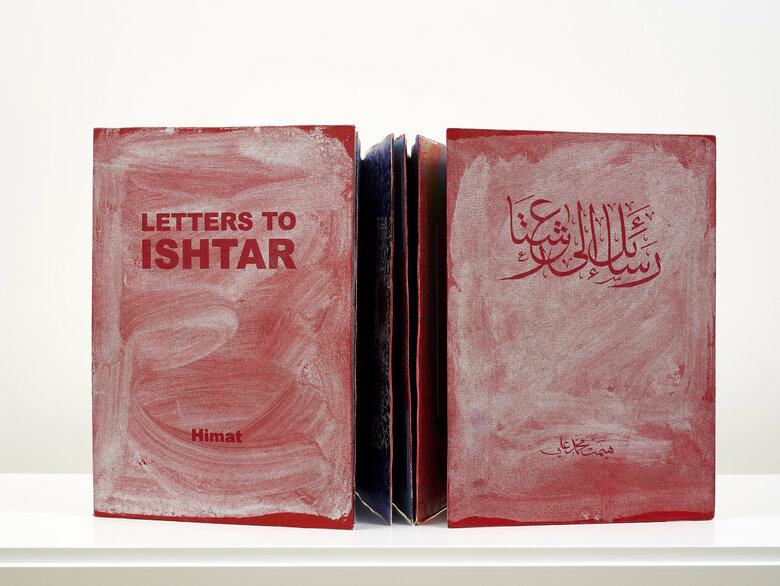 LETTERS TO
ISHTAR
Himat
رسائل إلى عشتار
هيمت محمد علي